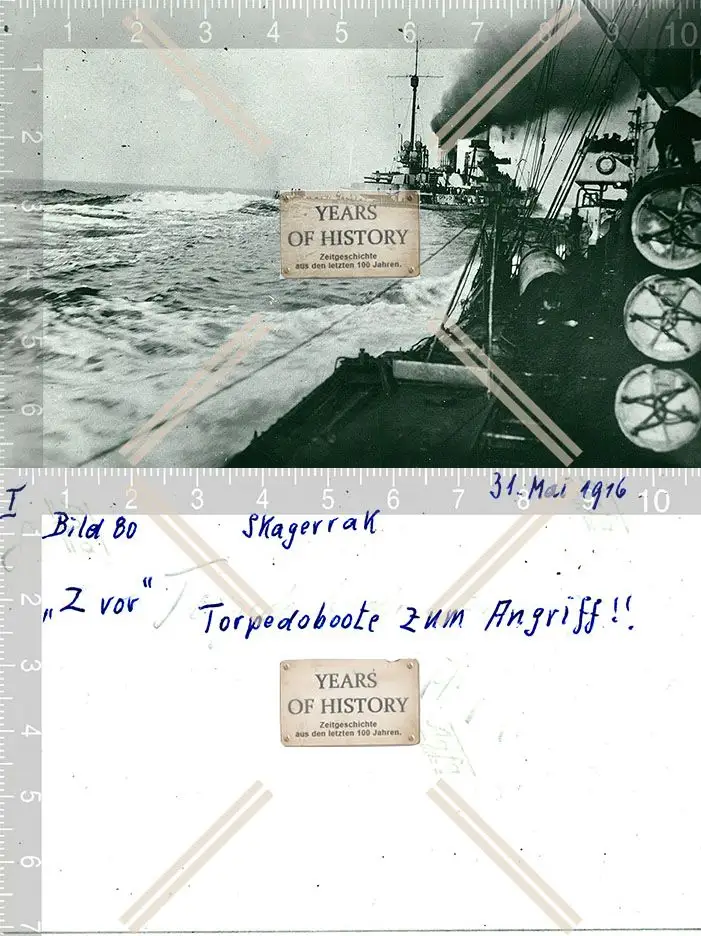 1 2 3 4 5 6 7 8 9 10
1
2
3
4
5
6
YEARS
OF HISTORY
Zeitgeschichte
aus den letzten 100 Jahren.
1 2 3 4 5 6 7 8 9 10
31. Mai 1916
I
Bild 80 Skagerrak
„Z vor“ Torpedoboote zum Angriff!!
1
2
3
4
5
6
7
YEARS
OF HISTORY
Zeitgeschichte
aus den letzten 100 Jahren.